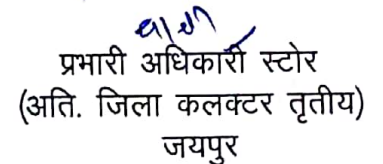 प्रभारी अधिकारी स्टोर
(अति. जिला कलक्टर तृतीय)
जयपुर